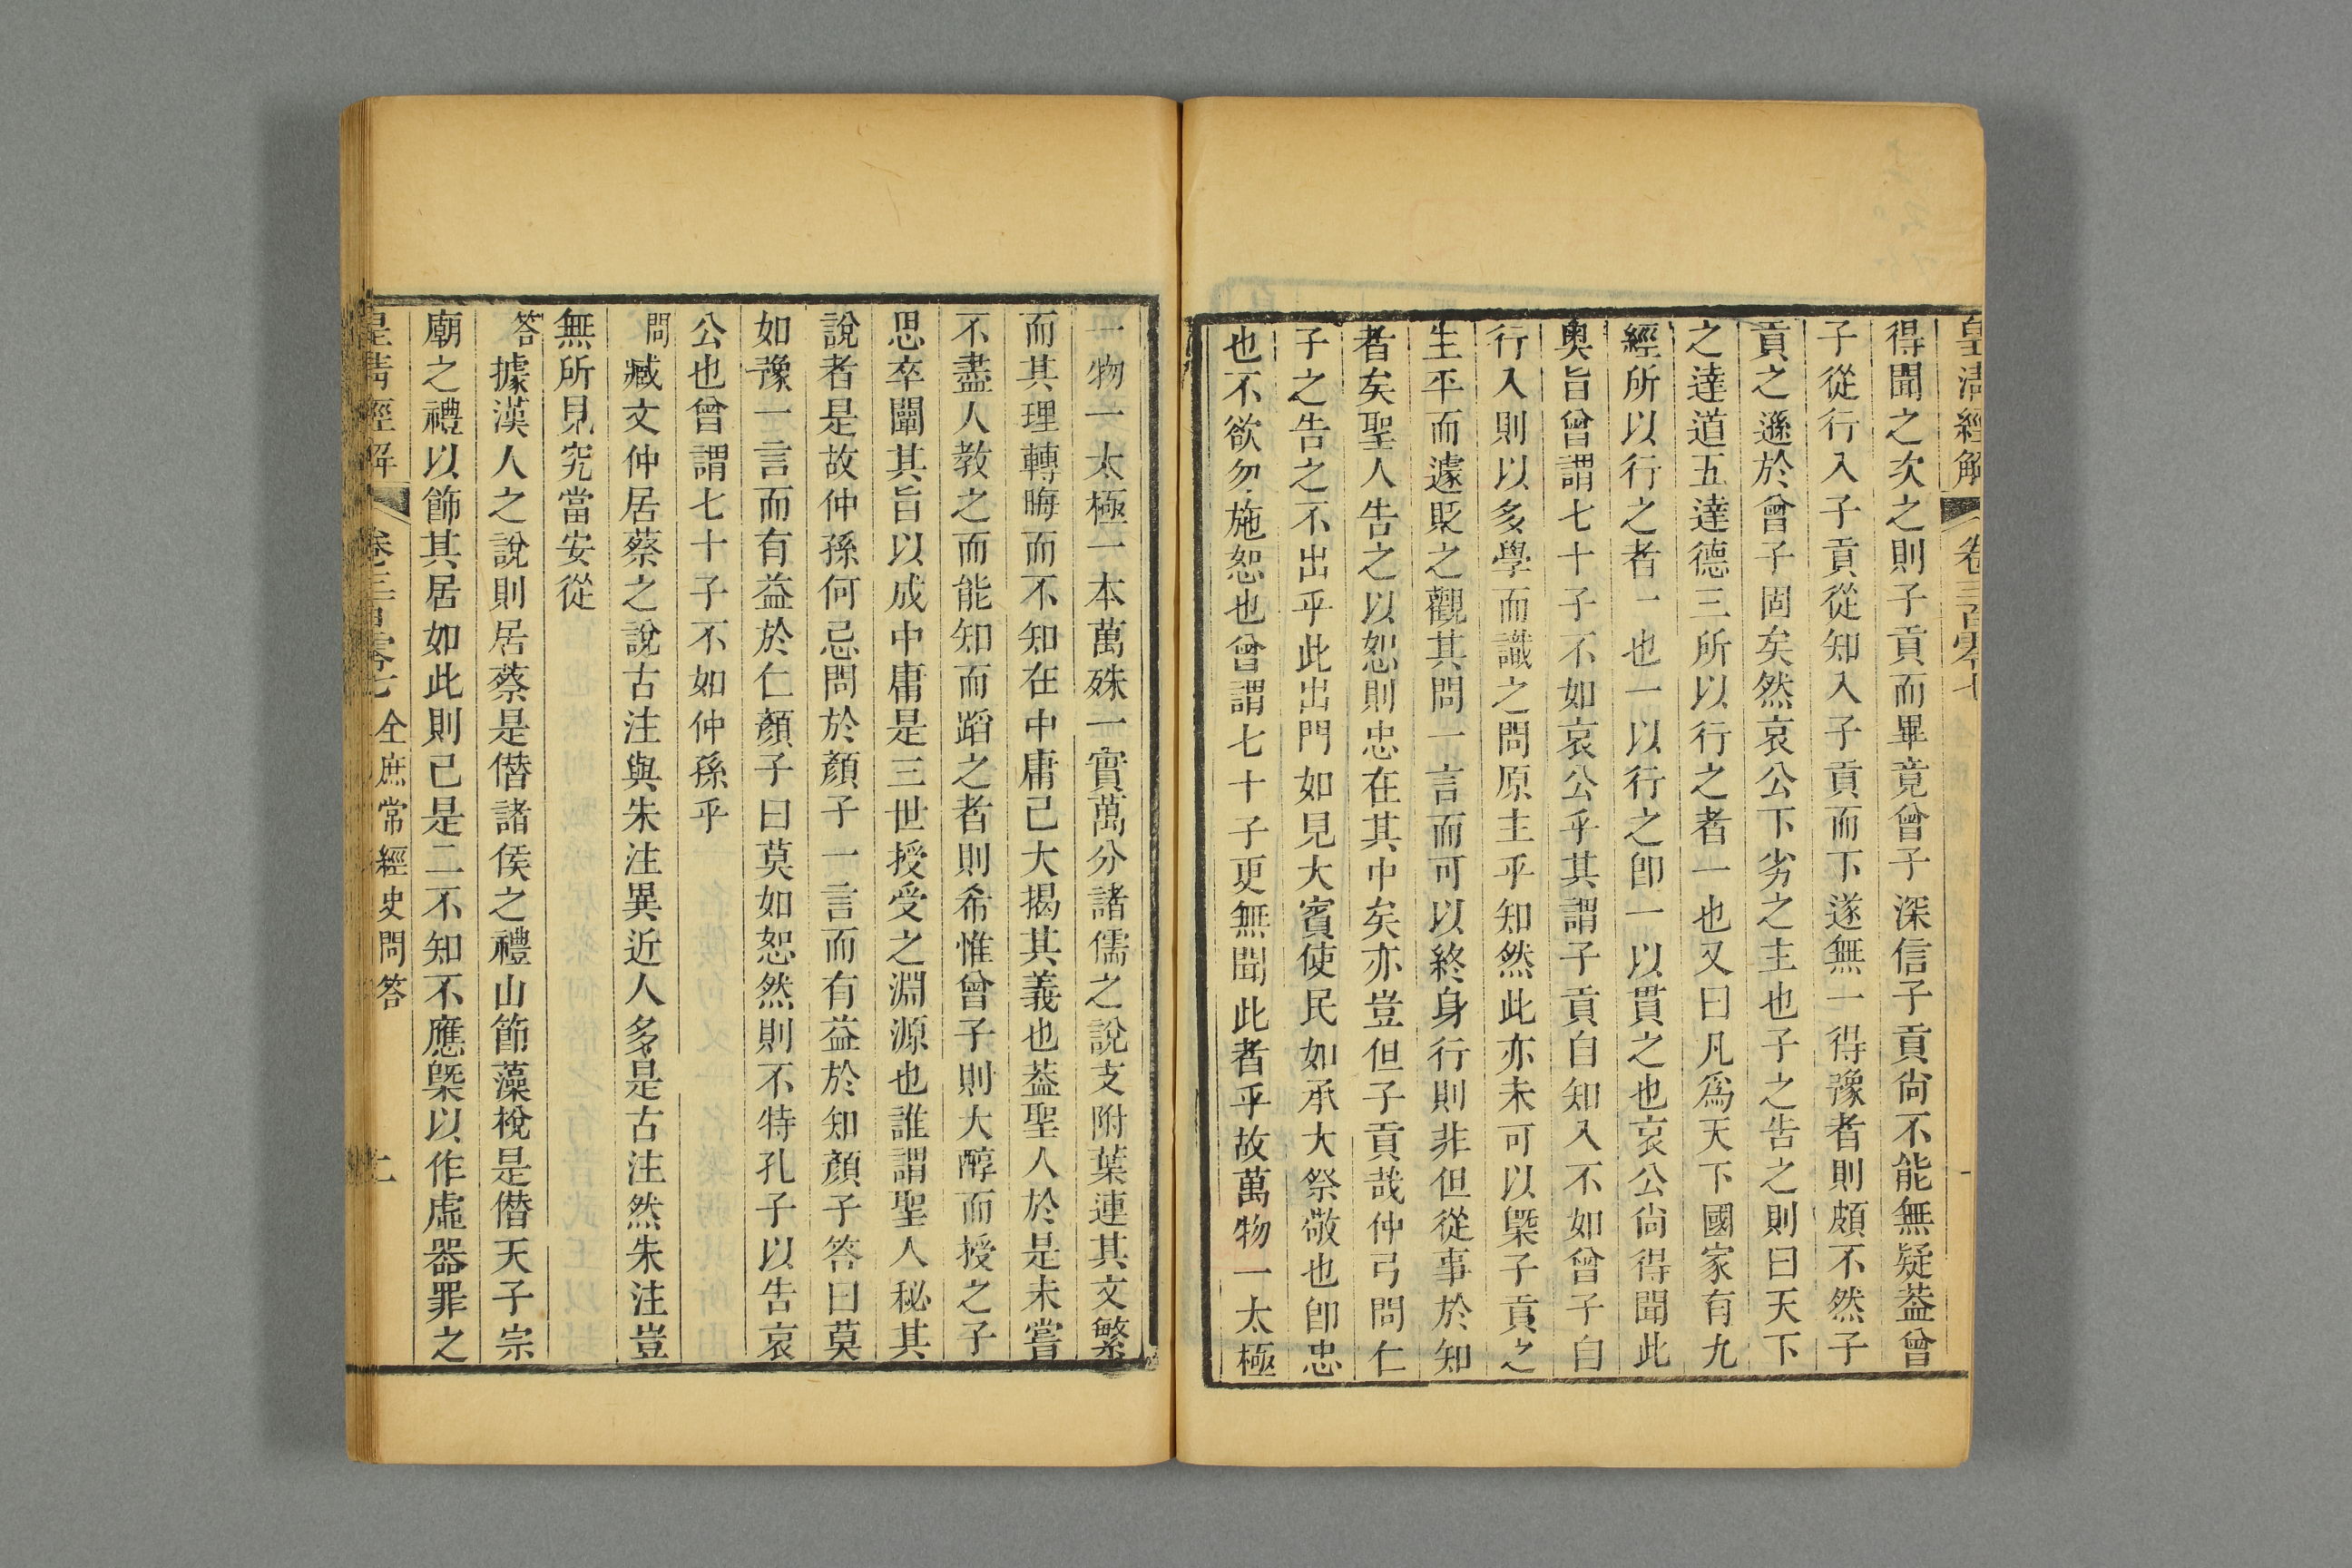 皇清經解 卷三百零七
得聞之次之則子貢而畢竟曾子深信子貢尙不能無疑葢曾
子從行入子貢從知入子貢而下遂無一得豫者則頗不然子
貢之遜於曾子固矣然哀公下劣之主也子之告之則曰天下
之達道五達德三所以行之者一也又曰凡爲天下國家有九
經所以行之者一也一以行之卽一以貫之也哀公尙得聞此
奧旨曾謂七十子不如哀公乎其謂子貢自知入不如曾子自
行入則以多學而識之問原主乎知然此亦未可以槩子貢之
生平而遽貶之觀其問一言而可以終身行則非但從事於知
者矣聖人告之以恕則忠在其中矣亦豈但子貢哉仲弓問仁
子之告之不出乎此出門如見大賓使民如承大祭敬也卽忠
也不欲勿施恕也曾謂七十子更無聞此者乎故萬物一太極
一物一太極一本萬殊一實萬分諸儒之說支附葉連其文繁
而其理轉晦而不知在中庸已大揭其義也葢聖人於是未嘗
不盡人教之而能知而蹈之者則希惟曾子則大醇而授之子
思卒闡其旨以成中庸是三世授受之淵源也誰謂聖人秘其
說者是故仲孫何忌問於顏子一言而有益於知顏子答曰莫
如豫一言而有益於仁顏子曰莫如恕然則不特孔子以告哀
公也曾謂七十子不如仲孫乎
問臧文仲居蔡之說古注與朱注異近人多是古注然朱注豈
無所見究當安從
答據漢人之說則居蔡是僭諸侯之禮山節藻梲是僭天子宗
廟之禮以飾其居如此則已是二不知不應槩以作虛器罪之
皇淸經解 卷三百零七 全庶常經史問答